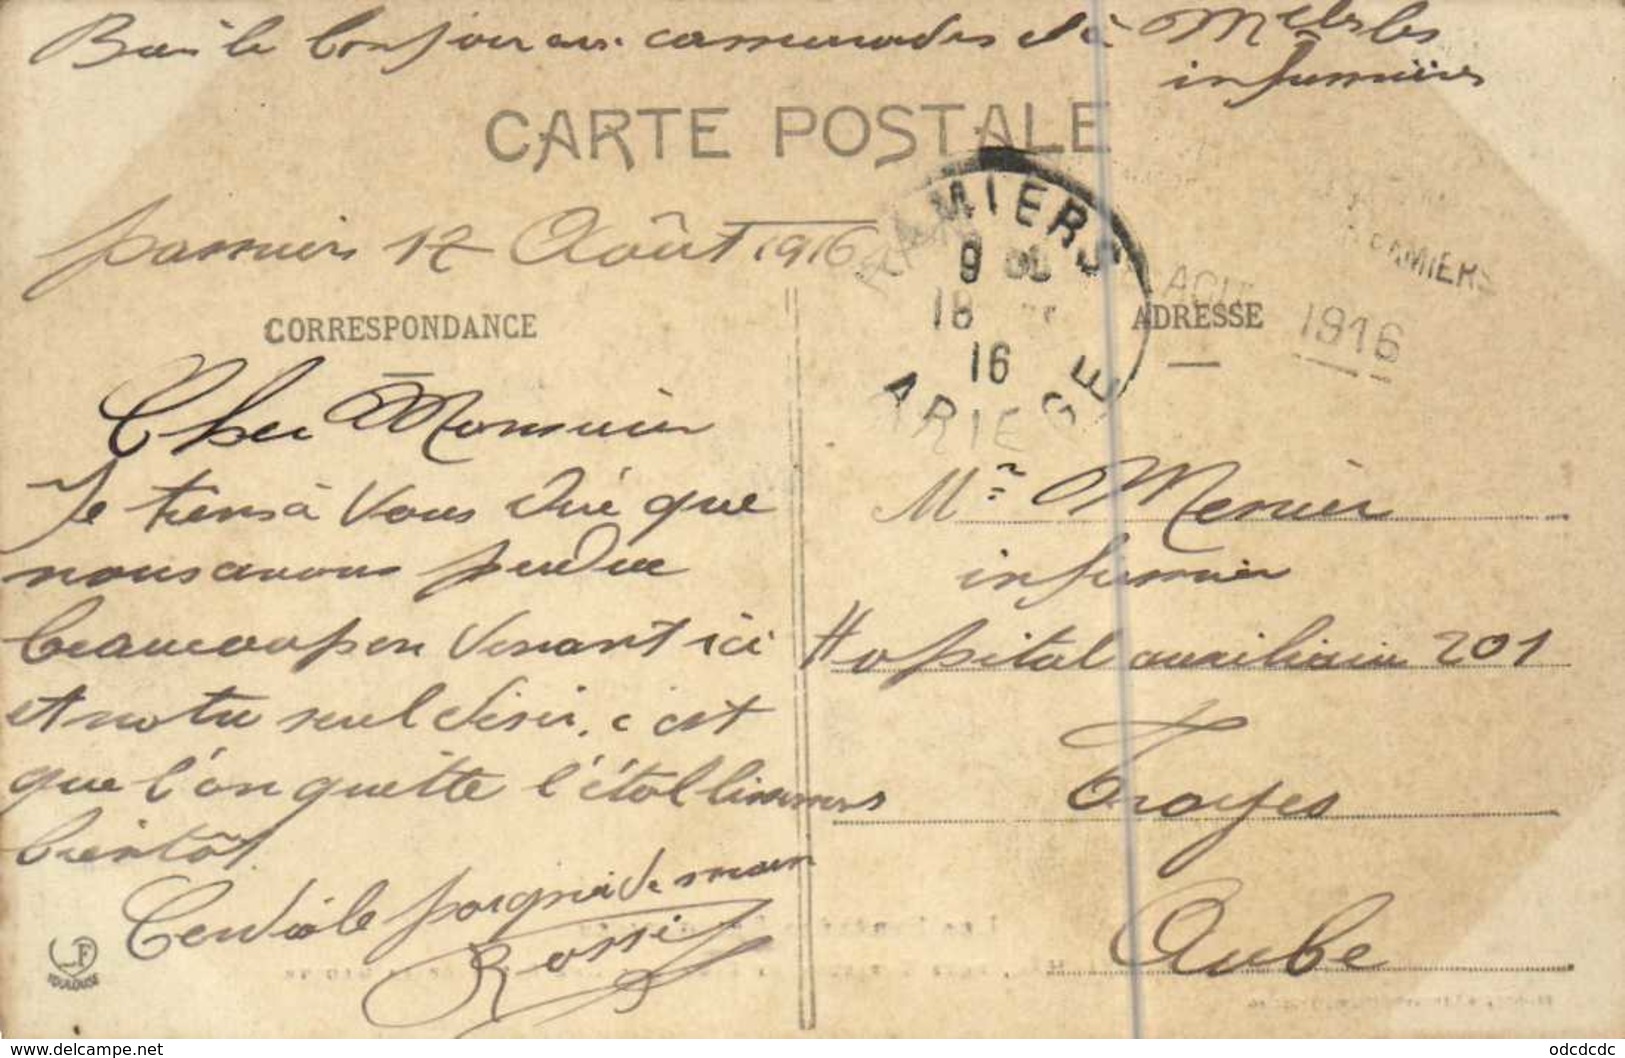 le bonjour aux cammarades et à Melles les
infirmières
CARTE POSTALE
Pamiers 17 Août 1916
PAMIERS
9
18
16
ARIEGE
PAMIERS
AOUT 1916
CORRESPONDANCE
ADRESSE
Cher Monsieur
Je tiens à vous dire que
nous avons perdue
beaucoup en venant ici
et notre seul désir, c'est
que l'on quitte l'établissement
bientôt
Cordiale poignée de main
Rossi
Mr Menier
infirmier
Hopital auxiliaire 201
Troyes
Aube
LF
TOULOUSE
www.delcampe.net
odcdcdc